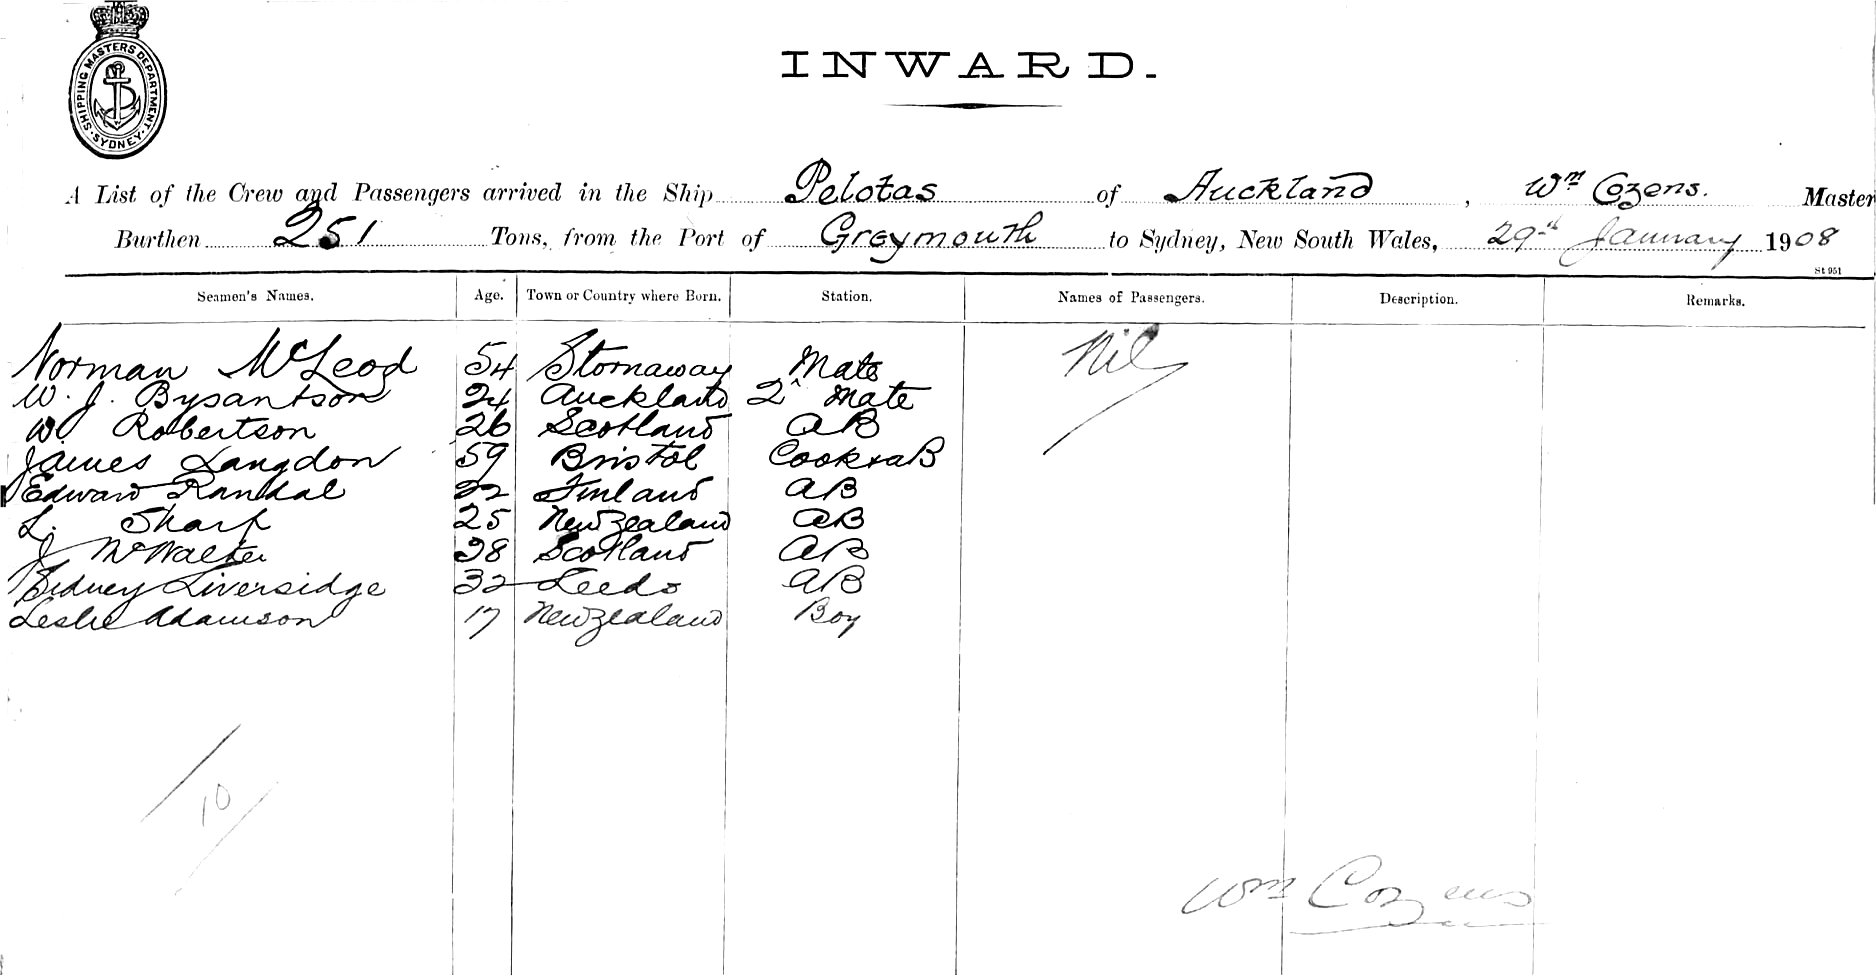 SHIPPING MASTERS DEPARTMENT · SYDNEY ·
INWARD.
A List of the Crew and Passengers arrived in the Ship Pelotas of Auckland, Wm Cozens. Master
Burthen 251 Tons, from the Port of Greymouth to Sydney, New South Wales, 29th January 1908
St 951
Seamen's Names. Age. Town or Country where Born. Station. Names of Passengers. Description. Remarks.
Norman McLeod 54 Stornaway Mate Nil
W. J. Bysantson 24 Auckland 2d Mate
W Robertson 26 Scotland AB
James Langdon 59 Bristol Cook &aB
Edward Randal 22 Finland AB
L. Sharp 25 New Zealand AB
J McWalter 28 Scotland AB
Sidney Liversidge 32 Leeds AB
Leslie Adamson 17 New Zealand Boy
10
Wm Cozens